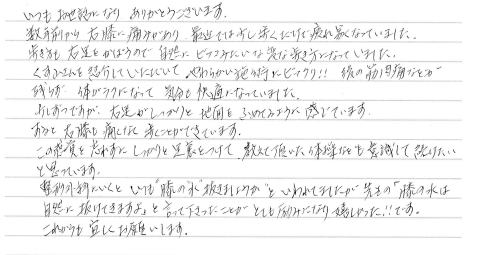 いつもお世話になり ありがとうございます。
数年前から 右膝に痛みがあり 最近では少し歩くだけで疲れ易くなっていました。
歩き方も 右足をかばうので 自然に ビッコみたいな変な歩き方になっていました。
くすのきさんを紹介していただいて やわらかい施術にビックリ!! 後の筋肉痛なども
残らず 体がラクになって 気分も快適になっていました。
少しずつですが、右足がしっかりと地面をふめてるように感じています。
おかげで 右膝も痛くなく歩くことができています。
この感覚を忘れずに しっかりと足裏をつけて 教えて頂いた体操なども意識して続けたい
と思っています。
整形外科にいくと いつも"膝の水"抜きましょうか"といわれてましたが 先生の「膝の水は
自然に抜けてきますよ」と言って下さったことが とても励みになり嬉しかった!!です。
これからも宜しくお願いします。